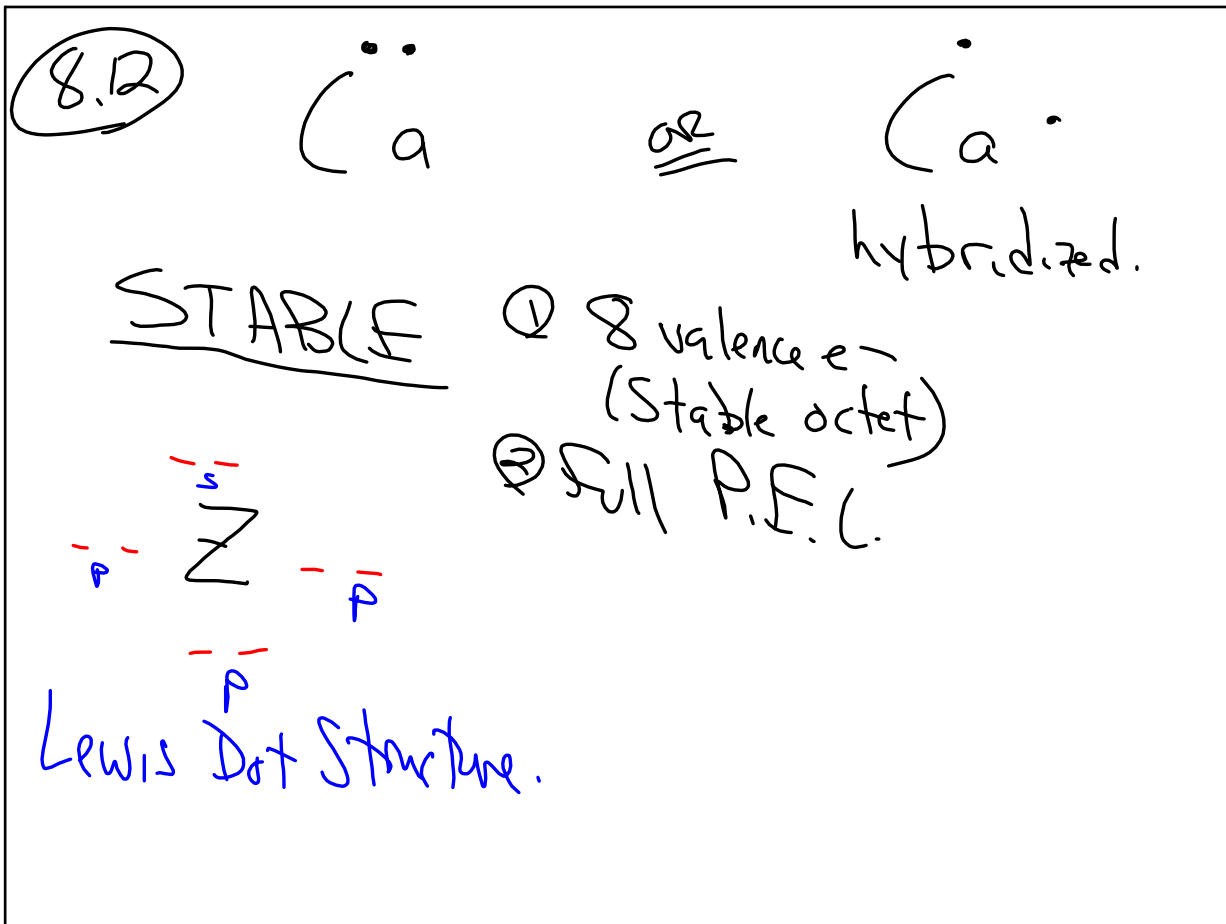 8.12
Ca or Ca
hybridized.
STABLE ① 8 valence e-
(Stable octet)
② Full P.E.L.
s
Z
p p
p
Lewis Dot Structure.